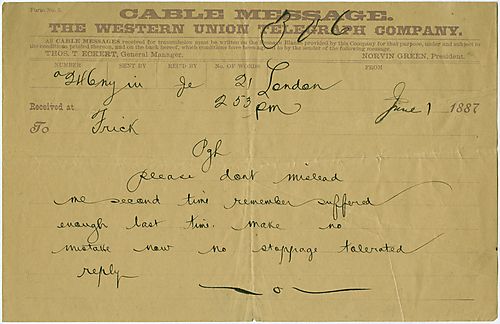 Form No. 5.
CABLE MESSAGE.
THE WESTERN UNION TELEGRAPH COMPANY.
All CABLE MESSAGES received for transmission must be written on the Blanks provided by this Company for that purpose, under and subject to
the conditions printed thereon, and on the back hereof, which conditions have been agreed to by the sender of the following message.
THOS. T. ECKERT, General Manager. NORVIN GREEN, President.
NUMBER SENT BY REC'D BY No. OF WORDS FROM
21 London
Received at 2 53 pm June 1 1887
To Frick
Pgh
please dont mislead
me second time remember suffered
enough last time. make no
mistake now no stoppage tolerated
reply